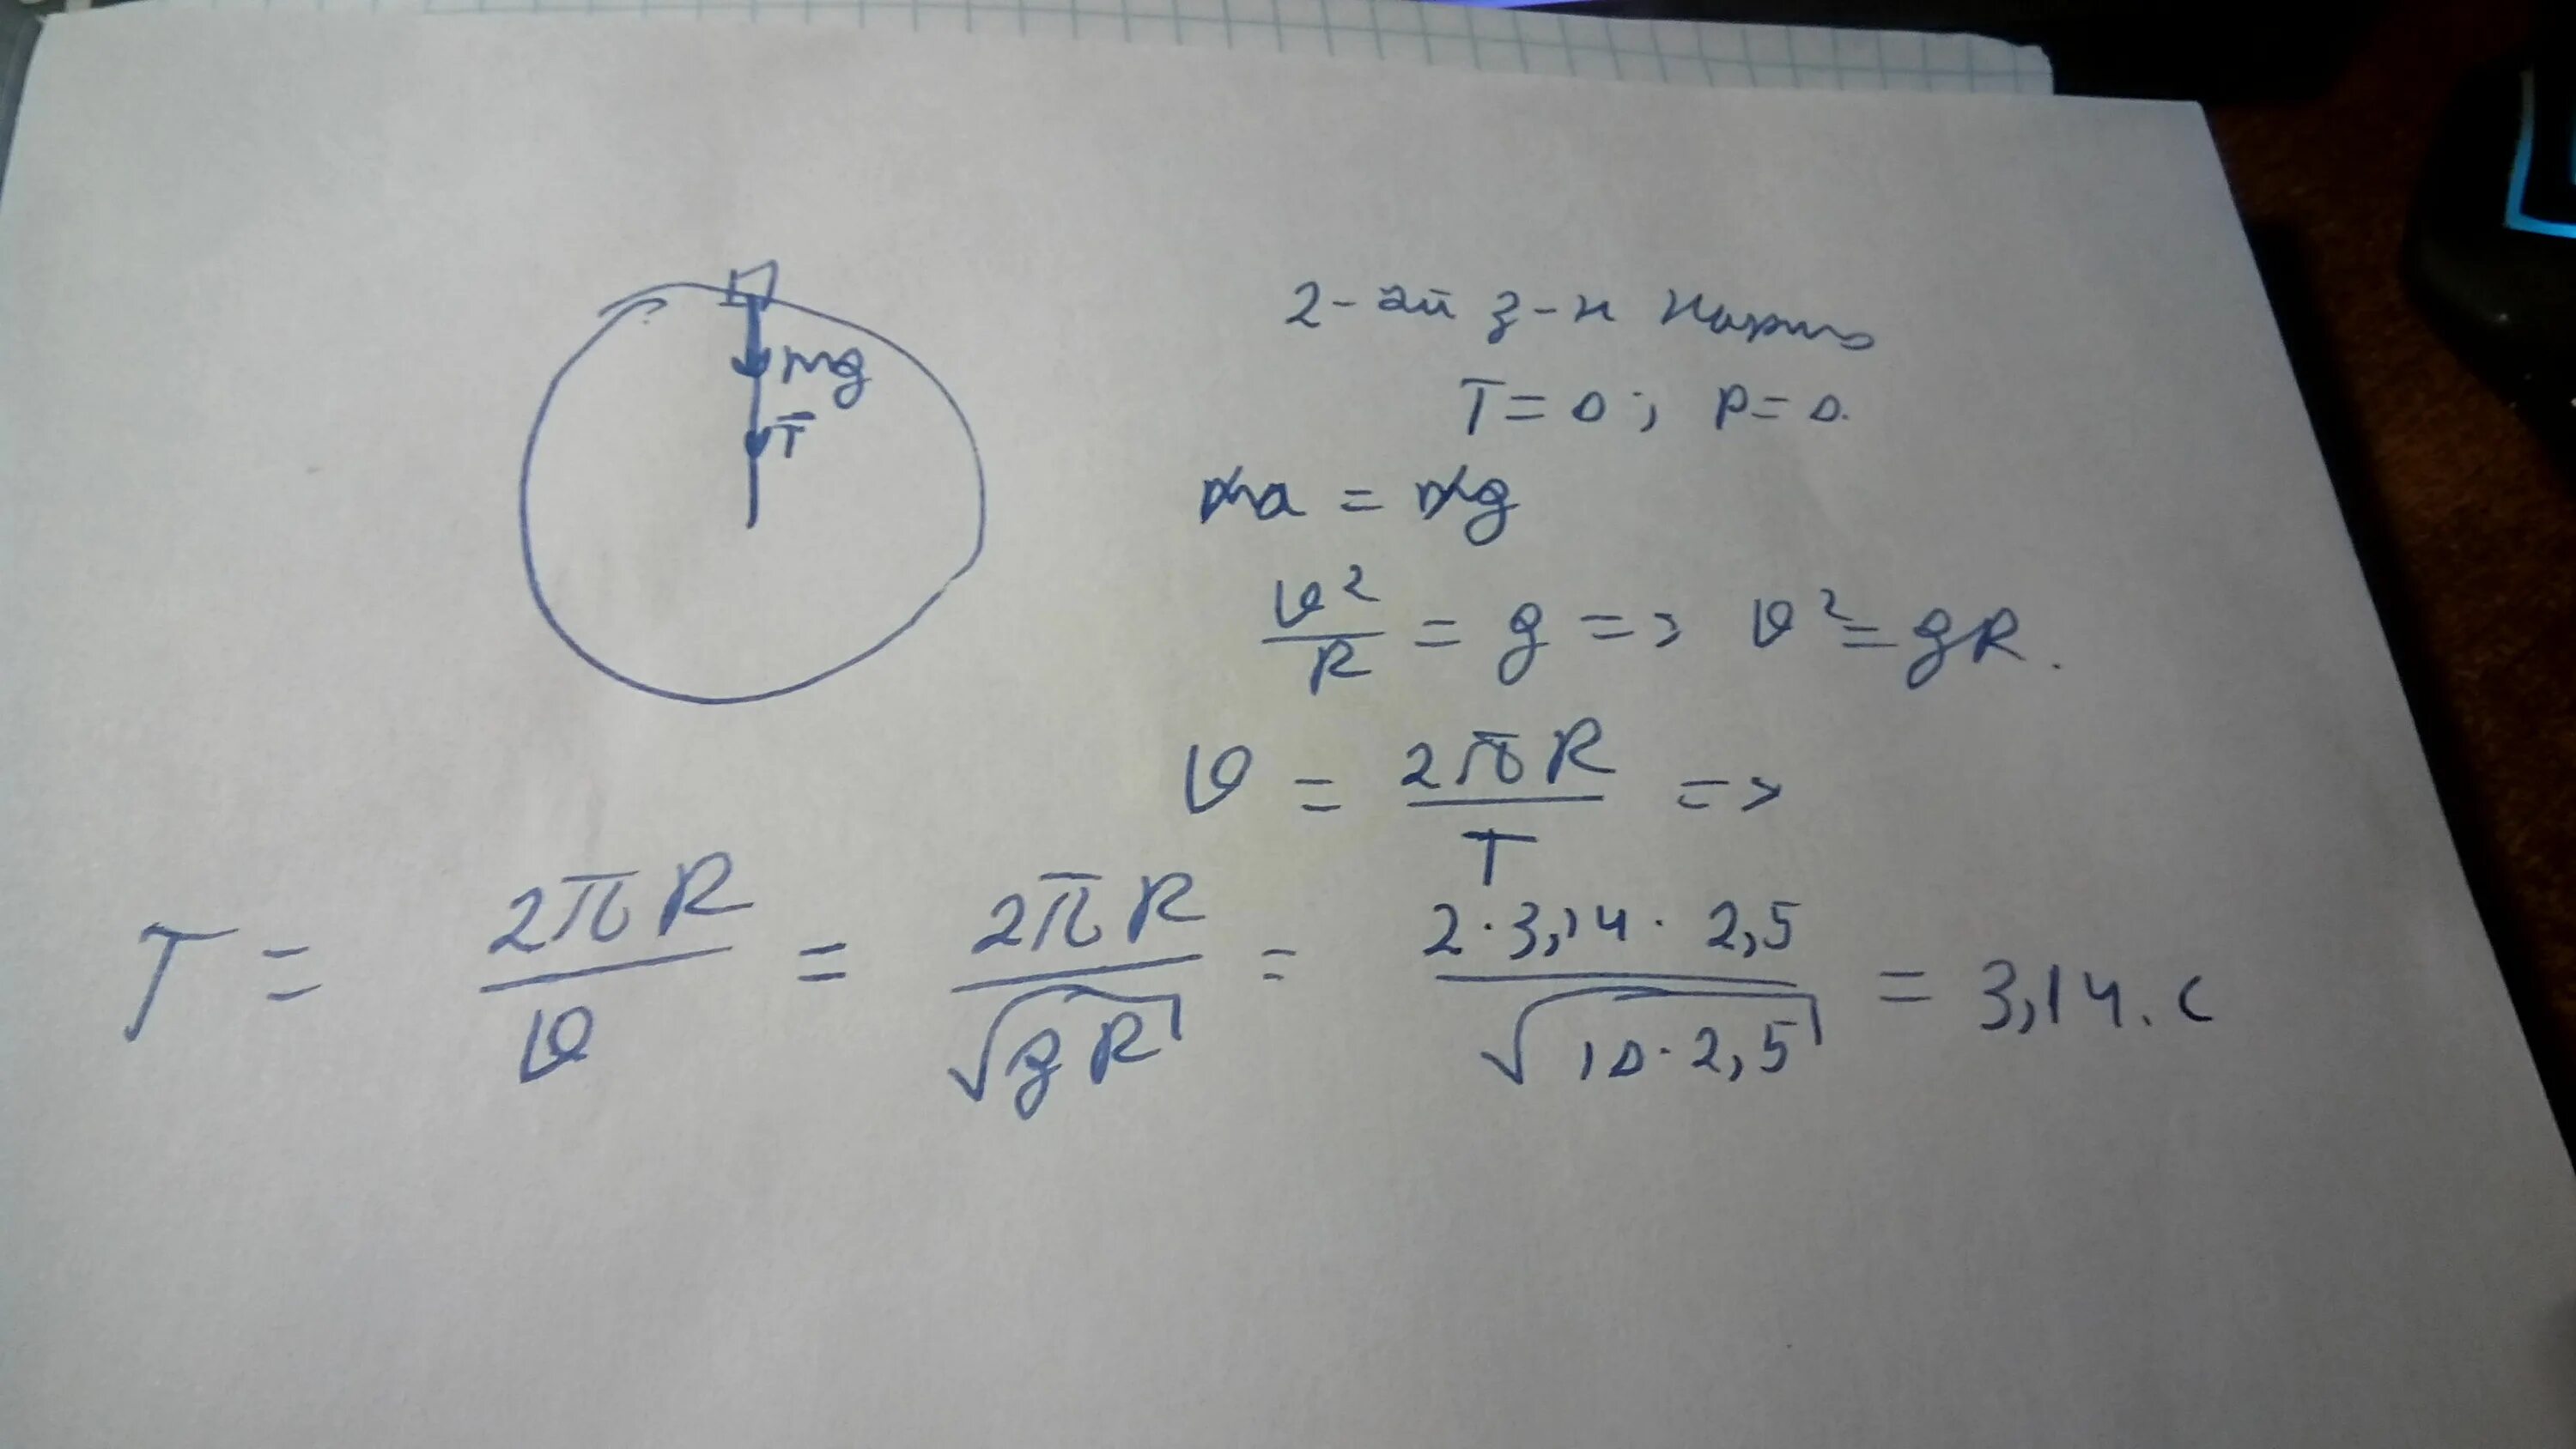 mg
T̄
2-ой з-н Ньютона
T = 0; P = 0.
ma = mg
v²/R = g => v² = gR.
v = 2πR/T =>
T = 2πR/v = 2πR/√(gR) = 2·3,14·2,5/√(10·2,5) = 3,14.с